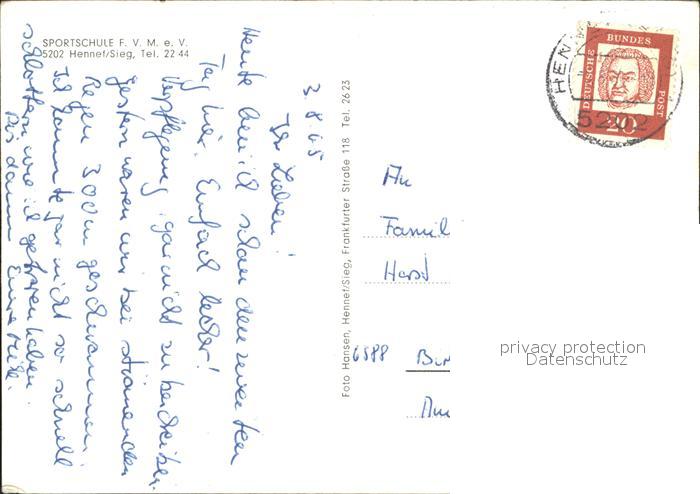 SPORTSCHULE F. V. M. e. V.
5202 Hennef/Sieg, Tel. 22 44
3.8.65
Ihr Lieben!
Heute bin ich schon den zweiten
Tag hier. Einfach lecker!
Verpflegung garnicht zu beschreiben.
Gestern waren wir bei strömenden
Regen 300m geschwommen.
Ich konnte gar nicht so schnell
schlottern wie ich gefroren habe.
Bis dann Eure
Foto Hansen, Hennef/Sieg, Frankfurter Straße 118 Tel. 26 23
DEUTSCHE BUNDES POST
20
HEN
5202
An
Famil
Horst
6588 Bir
Am
privacy protection
Datenschutz